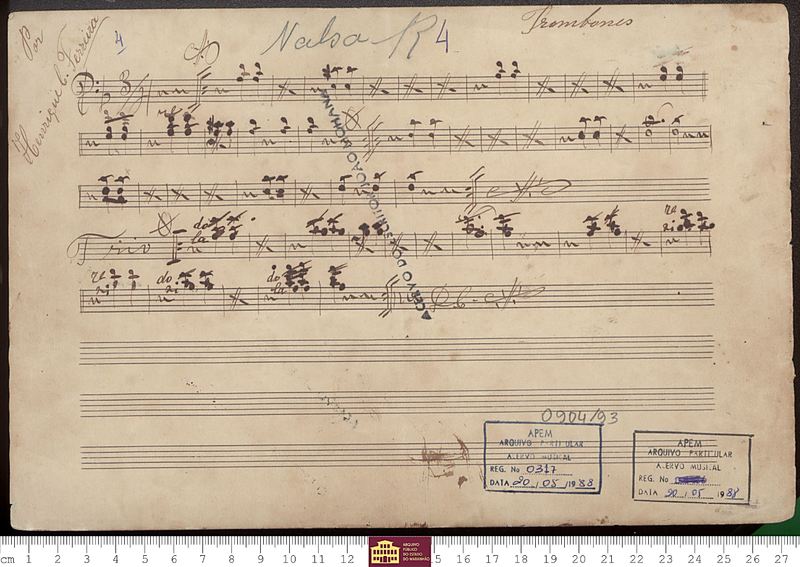 Por
Henrique C. Ferreira
4
Valsa Nº 4
Trombones
Trio
do
la
re
si
re
si
do
si
do
la
D. C.
ACERVO DO ESCRITOR JOÃO MOHANA
0904/93
APEM
ARQUIVO PARTICULAR
ACERVO MUSICAL
REG. No 0317
DATA 20 / 05 / 1988
APEM
ARQUIVO PARTICULAR
ACERVO MUSICAL
REG. No
DATA 20 / 05 1988
cm 1 2 3 4 5 6 7 8 9 10 11 12 15 16 17 18 19 20 21 22 23 24 25 26 27
ARQUIVO
PÚBLICO
DO ESTADO
DO MARANHÃO